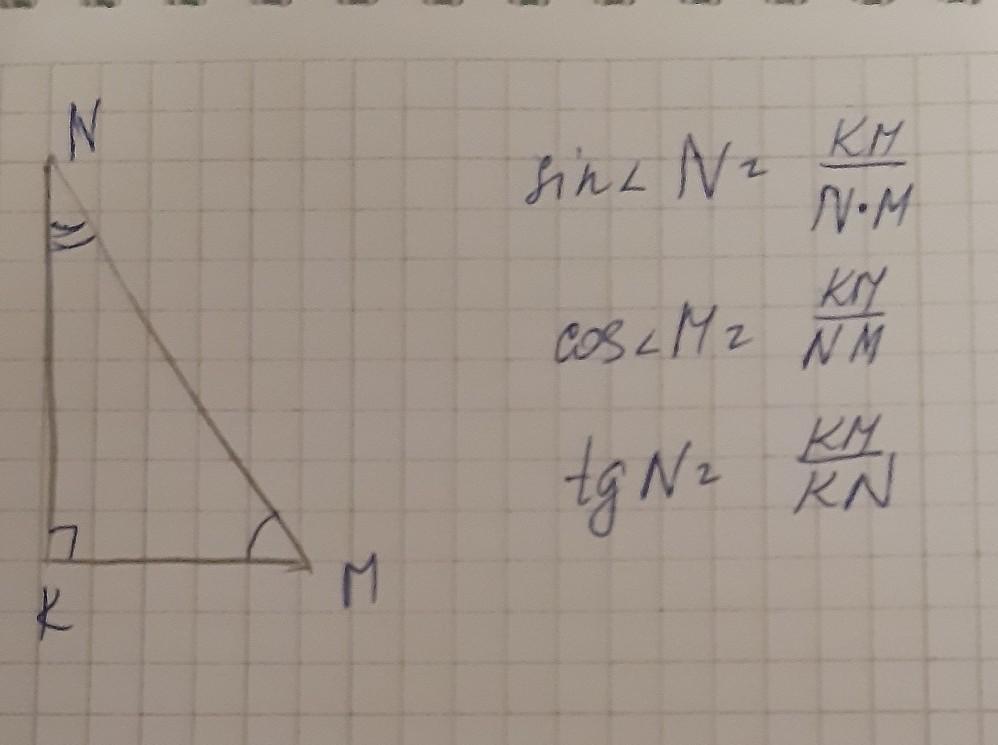 N
sin∠ N = KM / N·M
cos∠M = KM / NM
tg N = KM / KN
K
M